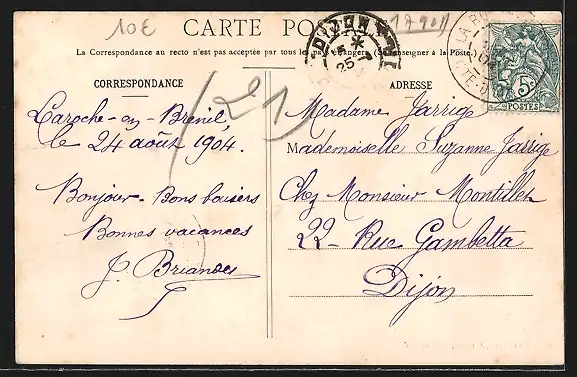 10€
CARTE POSTALE
17901
La Correspondance au recto n'est pas acceptée par tous les pays étrangers. (Se renseigner à la Poste.)
DIJON
25
5
POSTES
CORRESPONDANCE
ADRESSE
(21)
Laroche-en-Brenil,
le 24 août 1904.
Bonjour - Bons baisers
Bonnes vacances
J. Briandes
Madame Jarrige
Mademoiselle Suzanne Jarrige
Chez Monsieur Montillet
22 - Rue Gambetta
Dijon